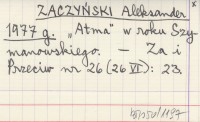 ZACZYŃSKI Aleksander
1977 g. „Atma” w roku Szy-
manowskiego. — Za i
Przeciw nr 26 (26 VI): 23.